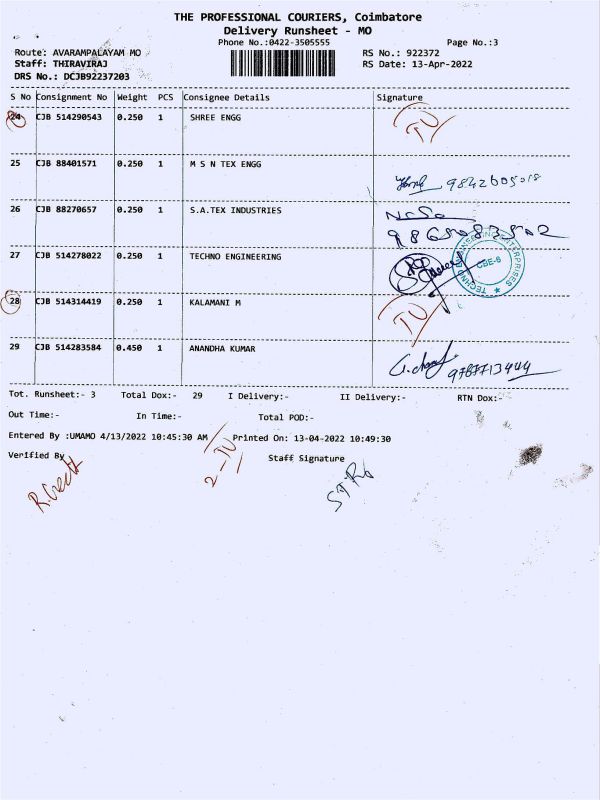 THE PROFESSIONAL COURIERS, Coimbatore
Delivery Runsheet - MO
Phone No.:0422-3505555
Page No.:3
Route: AVARAMPALAYAM MO
RS No.: 922372
Staff: THIRAVIRAJ
RS Date: 13-Apr-2022
DRS No.: DCJB92237203
S No Consignment No Weight PCS Consignee Details Signature
24 CJB 514290543 0.250 1 SHREE ENGG
25 CJB 88401571 0.250 1 M S N TEX ENGG
9842605018
26 CJB 88270657 0.250 1 S.A.TEX INDUSTRIES
27 CJB 514278022 0.250 1 TECHNO ENGINEERING
CBE-6
28 CJB 514314419 0.250 1 KALAMANI M
29 CJB 514283584 0.450 1 ANANDHA KUMAR
9787713444
Tot. Runsheet:- 3 Total Dox:- 29 I Delivery:- II Delivery:- RTN Dox:-
Out Time:- In Time:- Total POD:-
Entered By :UMAMO 4/13/2022 10:45:30 AM Printed On: 13-04-2022 10:49:30
Verified By Staff Signature